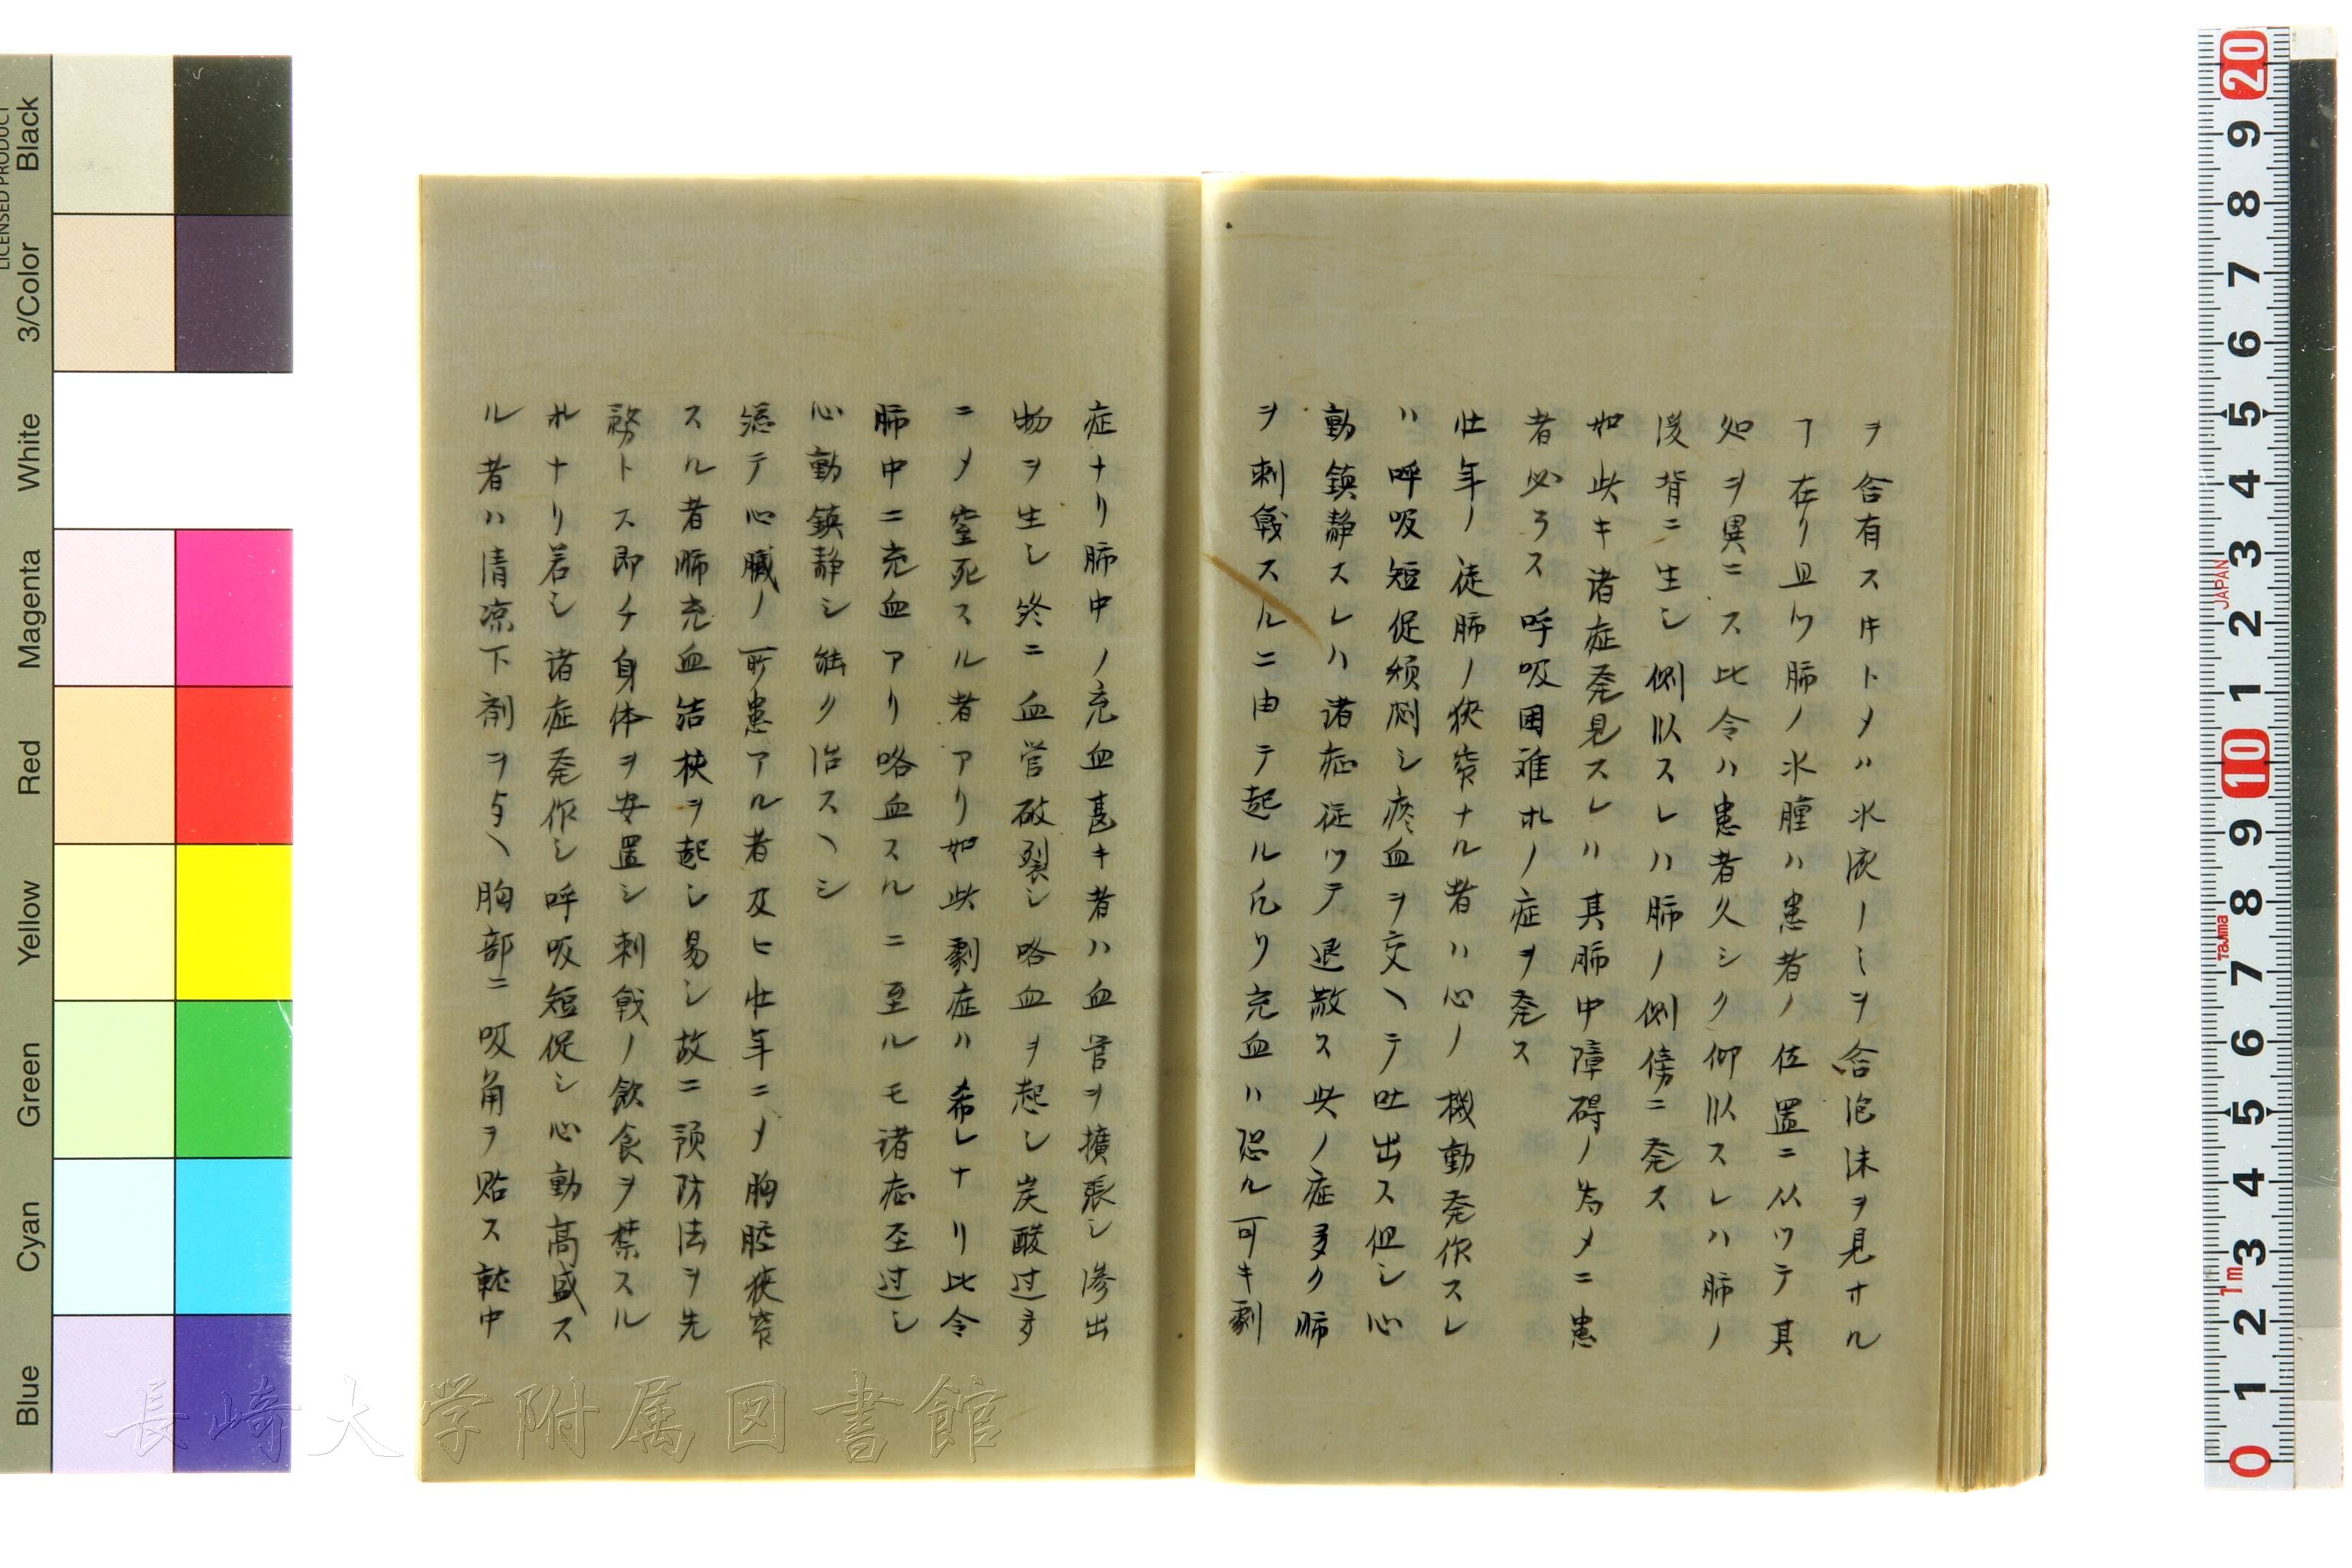 ヲ含有スキトメハ水液ノミヲ含泡沫ヲ見サル
ヿ在リ且ツ肺ノ水腫ハ患者ノ位置ニ从ツテ其
処ヲ異ニス比令ハ患者久シク仰臥スレハ肺ノ
後背ニ生シ側臥スレハ肺ノ側傍ニ発ス
如此キ諸症発見スレハ其肺中障碍ノ為メニ患
者必ラス呼吸困難ホノ症ヲ発ス
壮年ノ徒肺ノ狭窄ナル者ハ心ノ機動発作スレ
ハ呼吸短促頻劇シ痰血ヲ交ヘテ吐出ス但シ心
動鎮静スレハ諸症従ツテ退散ス此ノ症多ク肺
ヲ刺戟スルニ由テ起ル凡ソ充血ハ恐ル可キ劇
症ナリ肺中ノ充血甚キ者ハ血管ヲ擴張シ滲出
物ヲ生シ終ニ血管破裂シ咯血ヲ起シ炭酸过多
ニメ窒死スル者アリ如此劇症ハ希レナリ比令
肺中ニ充血アリ咯血スルニ至ルモ諸症至过シ
心動鎮静シ能ク治スヘシ
總テ心臓ノ所患アル者及ヒ壮年ニメ胸腔狭窄
スル者肺充血結核ヲ起シ易シ故ニ預防法ヲ先
務トス即チ身体ヲ安置シ刺戟ノ飲食ヲ禁スル
ホナリ若シ諸症発作シ呼吸短促シ心動高盛ス
ル者ハ清凉下剤ヲ与ヘ胸部ニ吸角ヲ貼ス就中
Black
3/Color
White
Magenta
Red
Yellow
Green
Cyan
Blue
LICENSED PRODUCT
JAPAN
Tajima
1m
20 9 8 7 6 5 4 3 2 1 10 9 8 7 6 5 4 3 2 1 0
長崎大学附属図書館